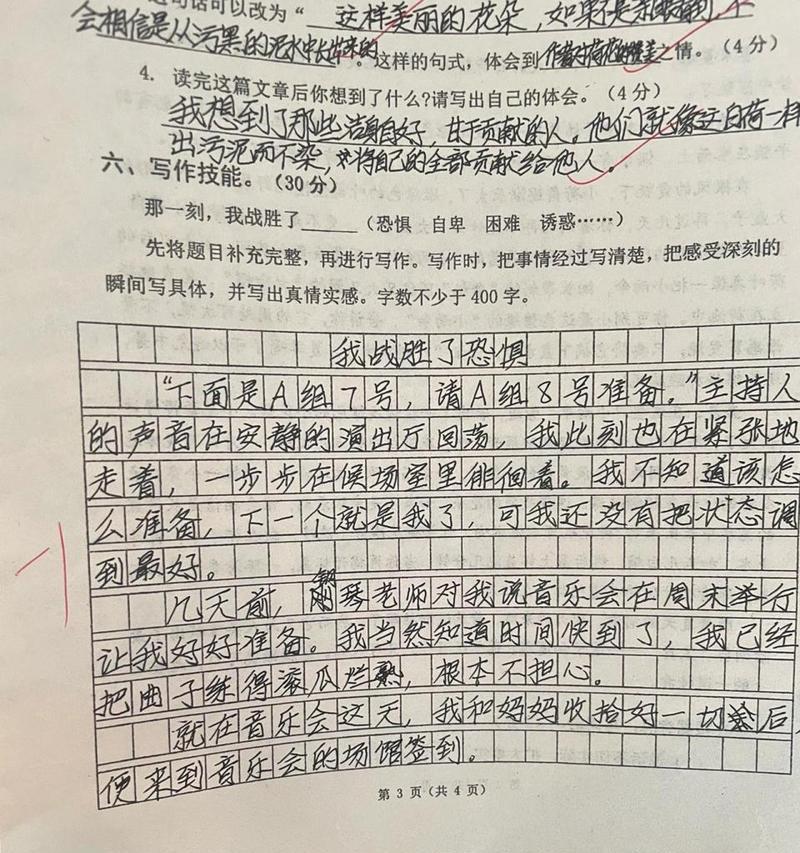 这句话可以改为“这样美丽的花朵,如果不是亲眼看到,不
会相信是从污黑的泥水中长出来的。这样的句式,体会到作者对荷花的赞美之情。(4分)
4. 读完这篇文章后你想到了什么?请写出自己的体会。(4分)
我想到了那些洁身自好,甘于贡献的人。他们就像这白荷一样
出污泥而不染,将自己的全部贡献给他人。
六、写作技能。(30分)
那一刻,我战胜了_____(恐惧 自卑 困难 诱惑……)
先将题目补充完整,再进行写作。写作时,把事情经过写清楚,把感受深刻的
瞬间写具体,并写出真情实感。字数不少于400字。
我战胜了恐惧
“下面是A组7号,请A组8号准备。”主持人
的声音在安静的演出厅回荡。我此刻也在紧张地
走着,一步步在候场室里徘徊着。我不知道该怎
么准备,下一个就是我了,可我还没有把状态调
到最好。
几天前,钢琴老师对我说音乐会在周末举行
让我好好准备。我当然知道时间快到了,我已经
把曲子练得滚瓜烂熟,根本不担心。
就在音乐会这天,我和妈妈收拾好一切后,
便来到音乐会的场馆签到。
第 3 页(共 4 页)